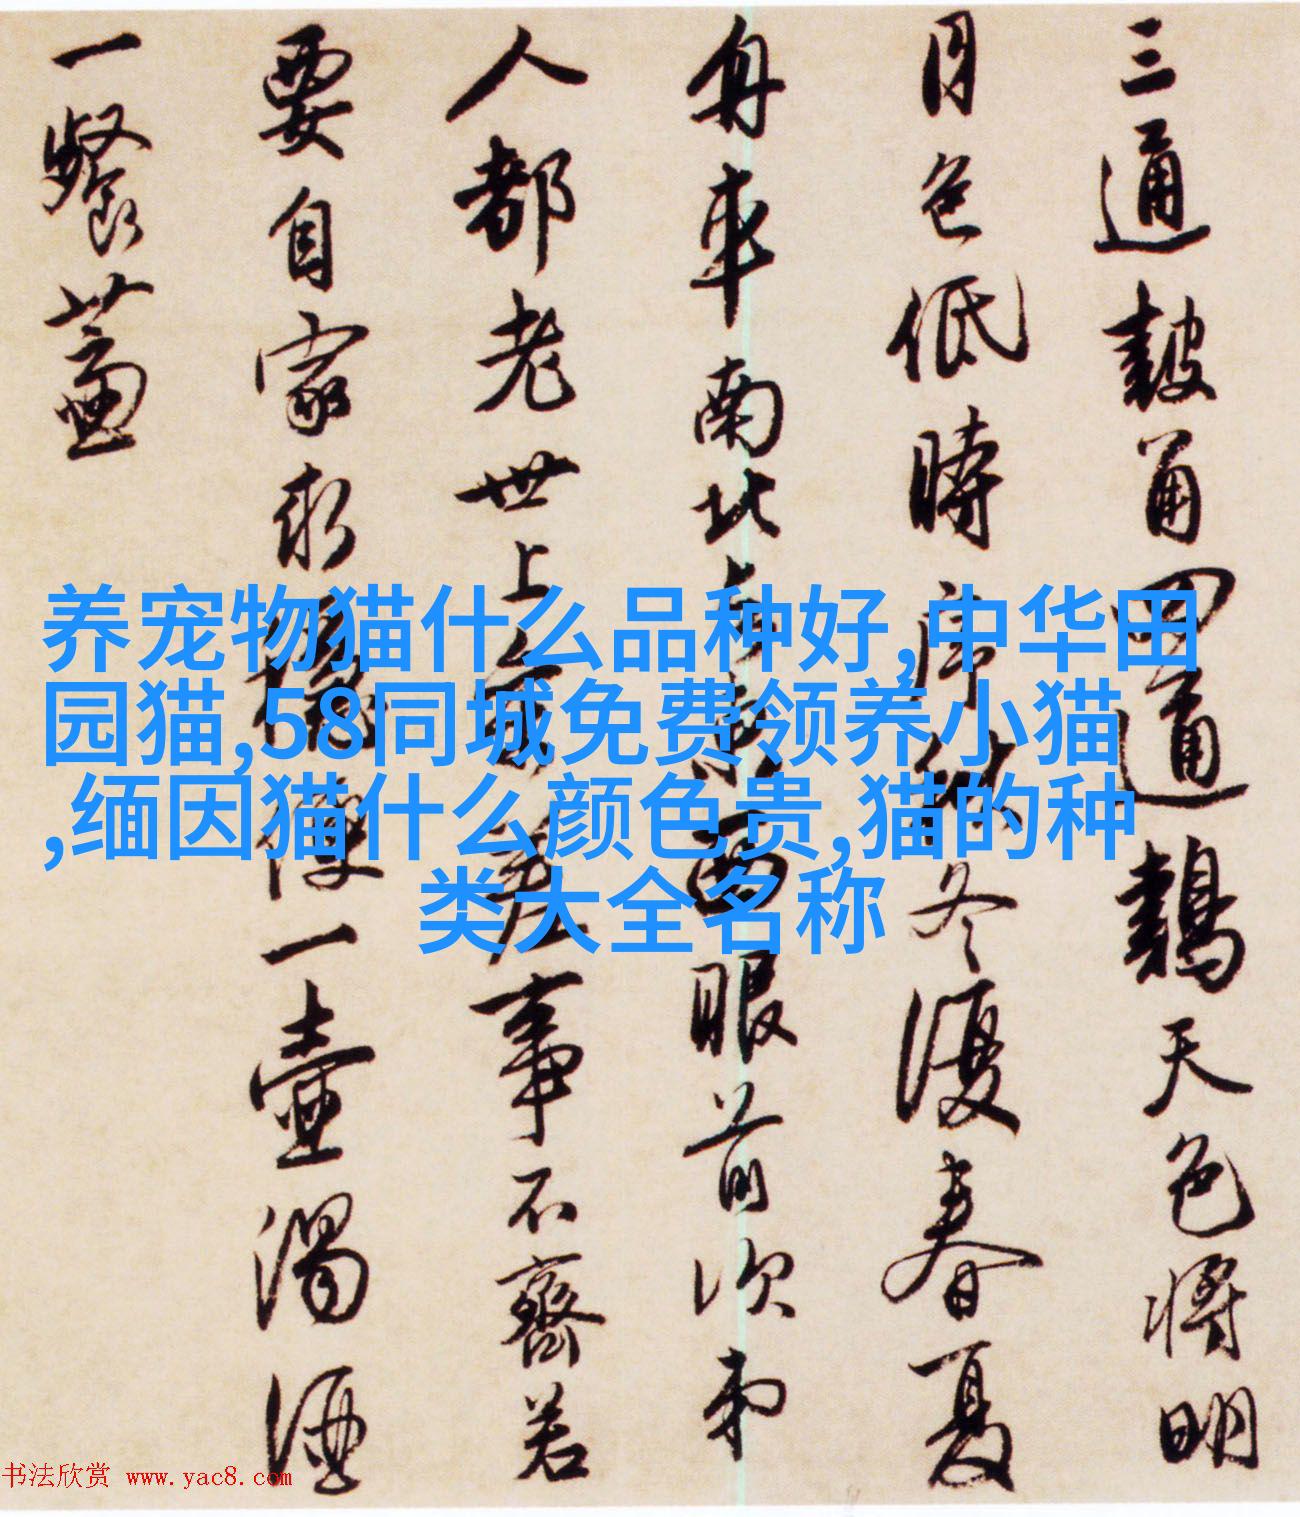 三通鼓角四通鷄天色將明
月色低時序秋冬復春夏
舟車南北東西眼前次第
人都老世上事不齊若
要自家求穩便一壺濁酒
一餐薺
养宠物猫什么品种好,中华田
园猫,58同城免费领养小猫
,缅因猫什么颜色贵,猫的种
类大全名称
书法欣赏 www.yac8.com